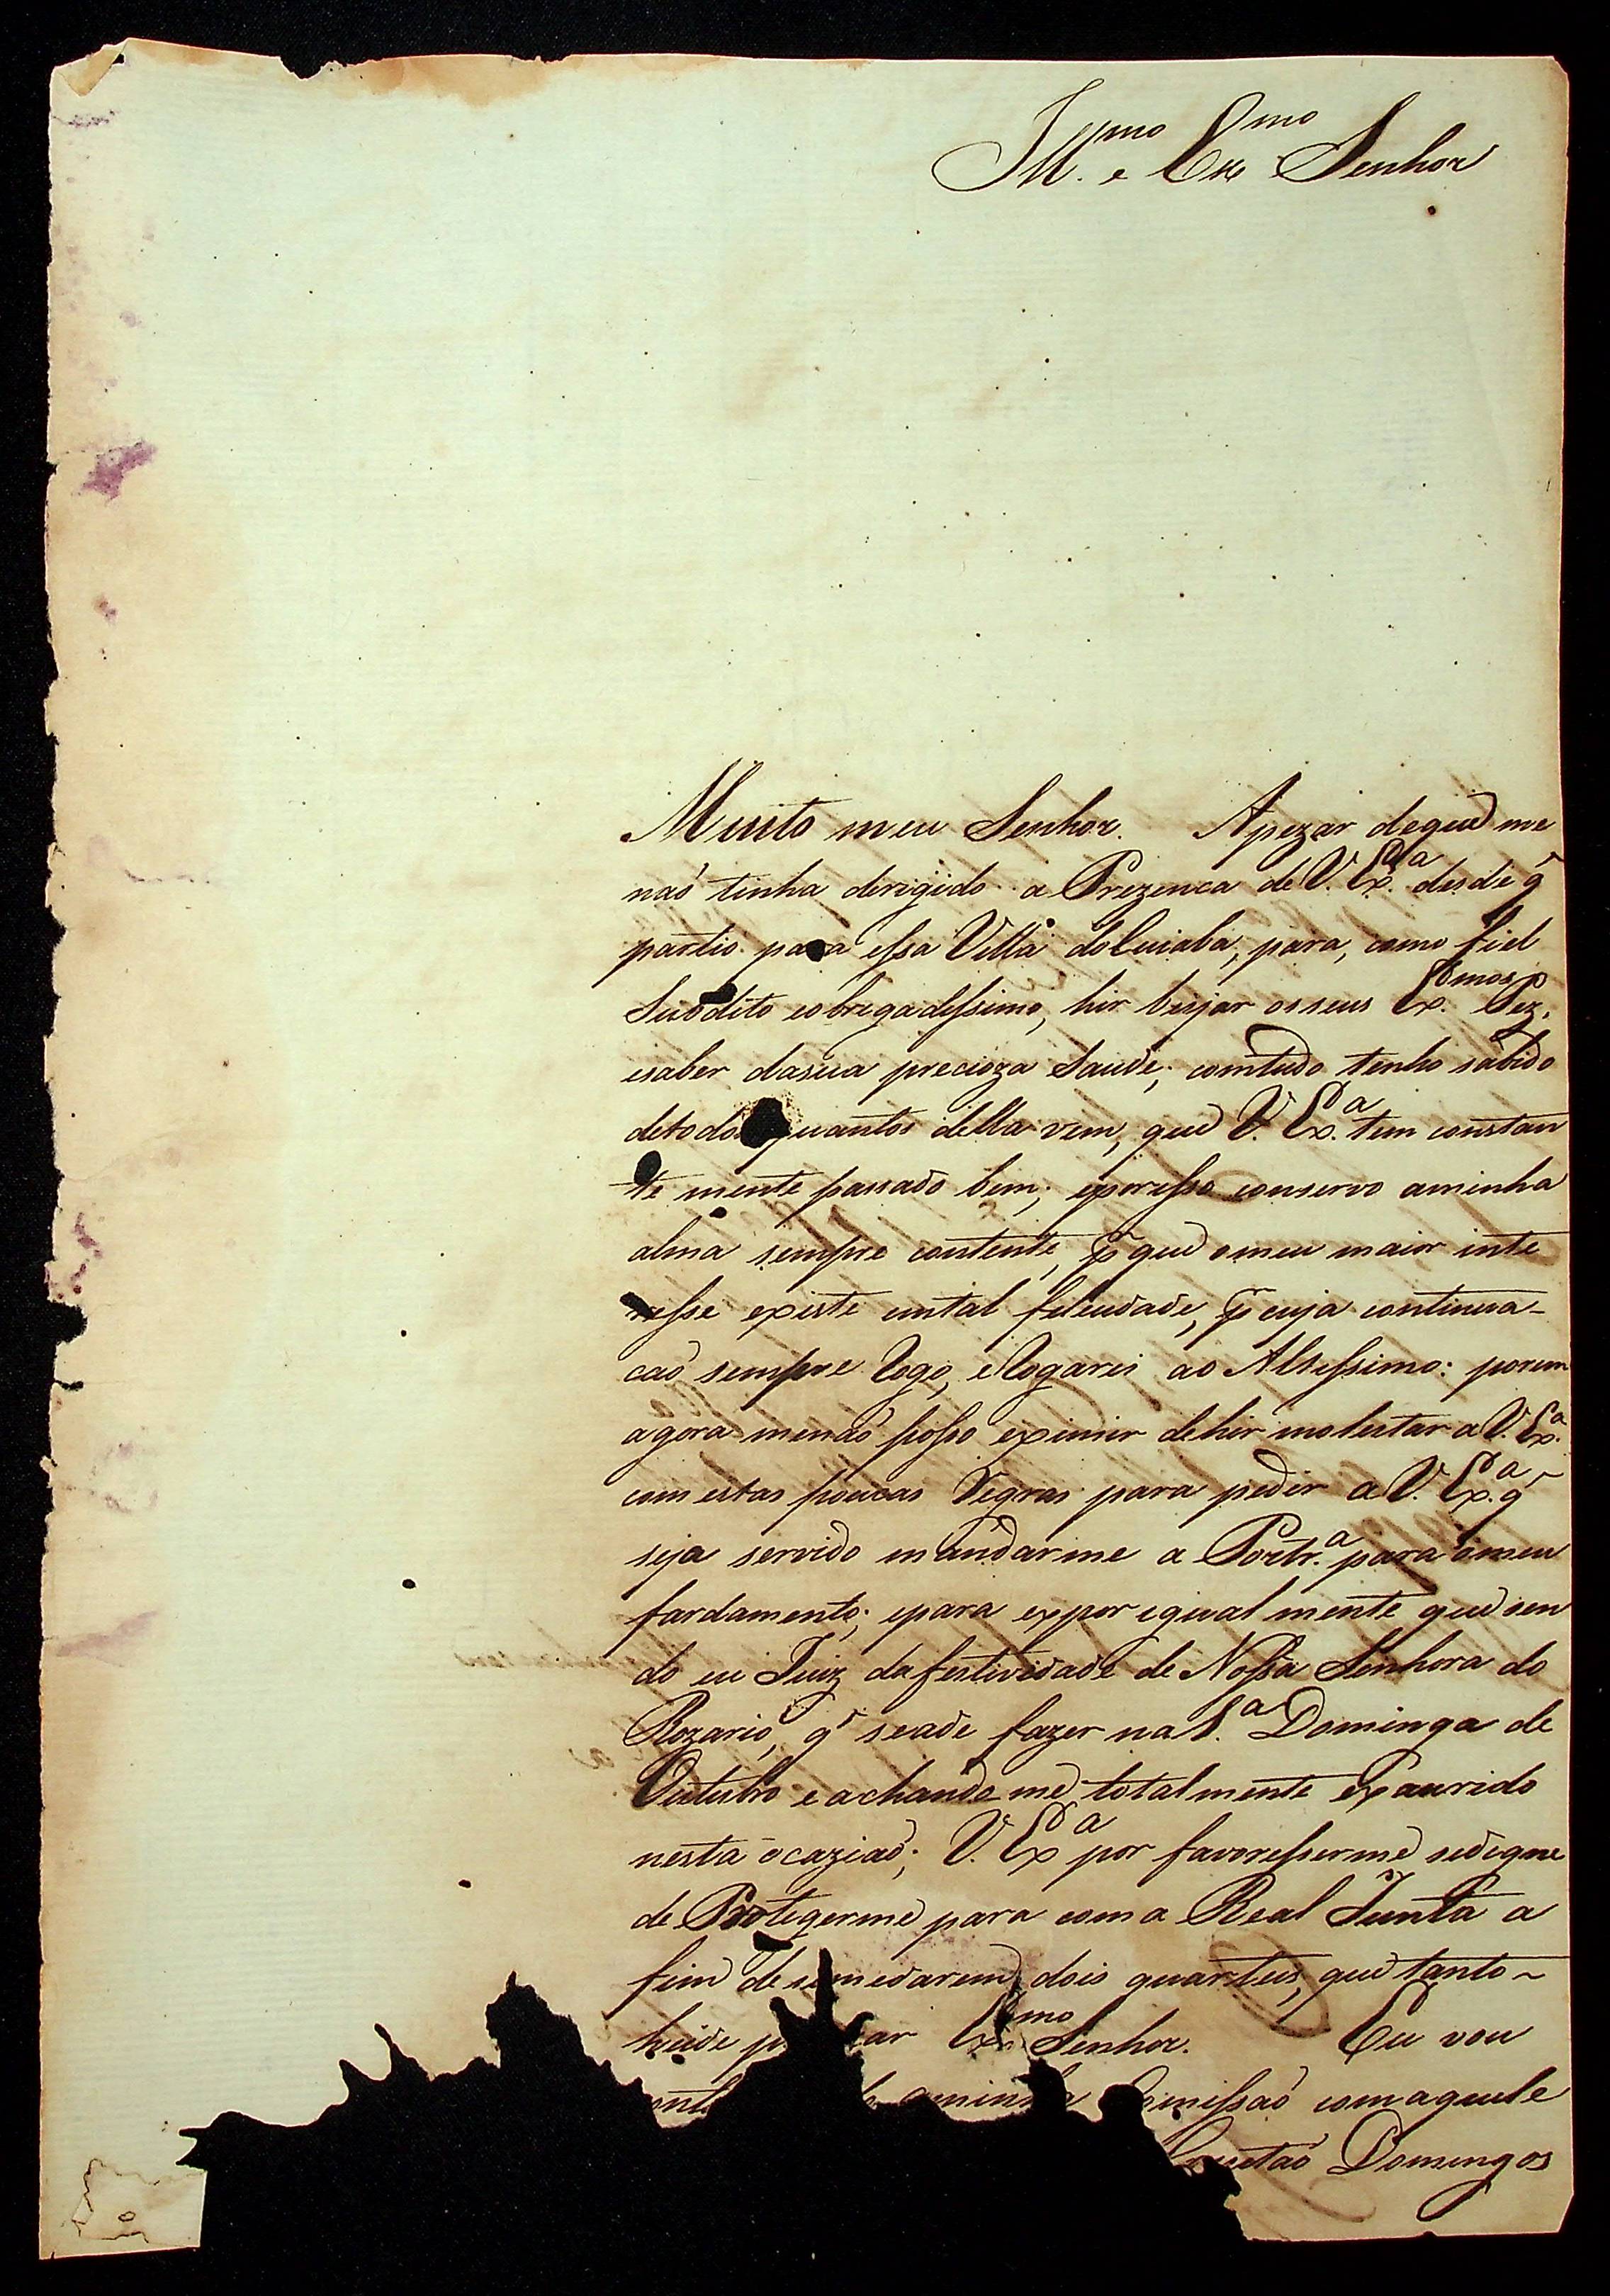 Ill.mo e Ex.mo Senhor
Muito meu Senhor. Apezar deque me
naõ tinha derigido a Prezenca de V. Ex.a desde q̃
partio para essa Villa do Cuiaba, para, como fiel
Subdito eobrigadissimo, hir beijar osseus Ex.mos Pez,
esaber dasua precioza Saude; comtudo tenho sabido
detodos quantos della vem, que V. Ex.a tem constan
te mente passado bem; eporisso conservo aminha
alma sempre contente, p.r que omeu maior inte
resse existe emtal felicidade, p.r cuja continua-
caõ sempre Rogo, e Rogarei ao Altissimo: porem
agora menaõ posso eximir dehir molestar a V. Ex.a
com estas poucas Regras para pedir a V. Ex.a q̃
seja servido mandarme a Portr.a para omeu
fardamento; epara expor igual mente que sen
do eu Juiz dafestividade de Nossa Senhora do
Rozario, q̃ seade fazer na 1.a Dominga de
Outubro e achando me totalmente exaurido
nesta ocaziaõ; V. Ex.a por favoresserme sedigne
de Protegerme para com a Real Junta a
fim de semedarem dois quarteis, que tanto
heide p ar Ex.mo Senhor. Eu vou
aminha Comissaõ comaquele
Domingos